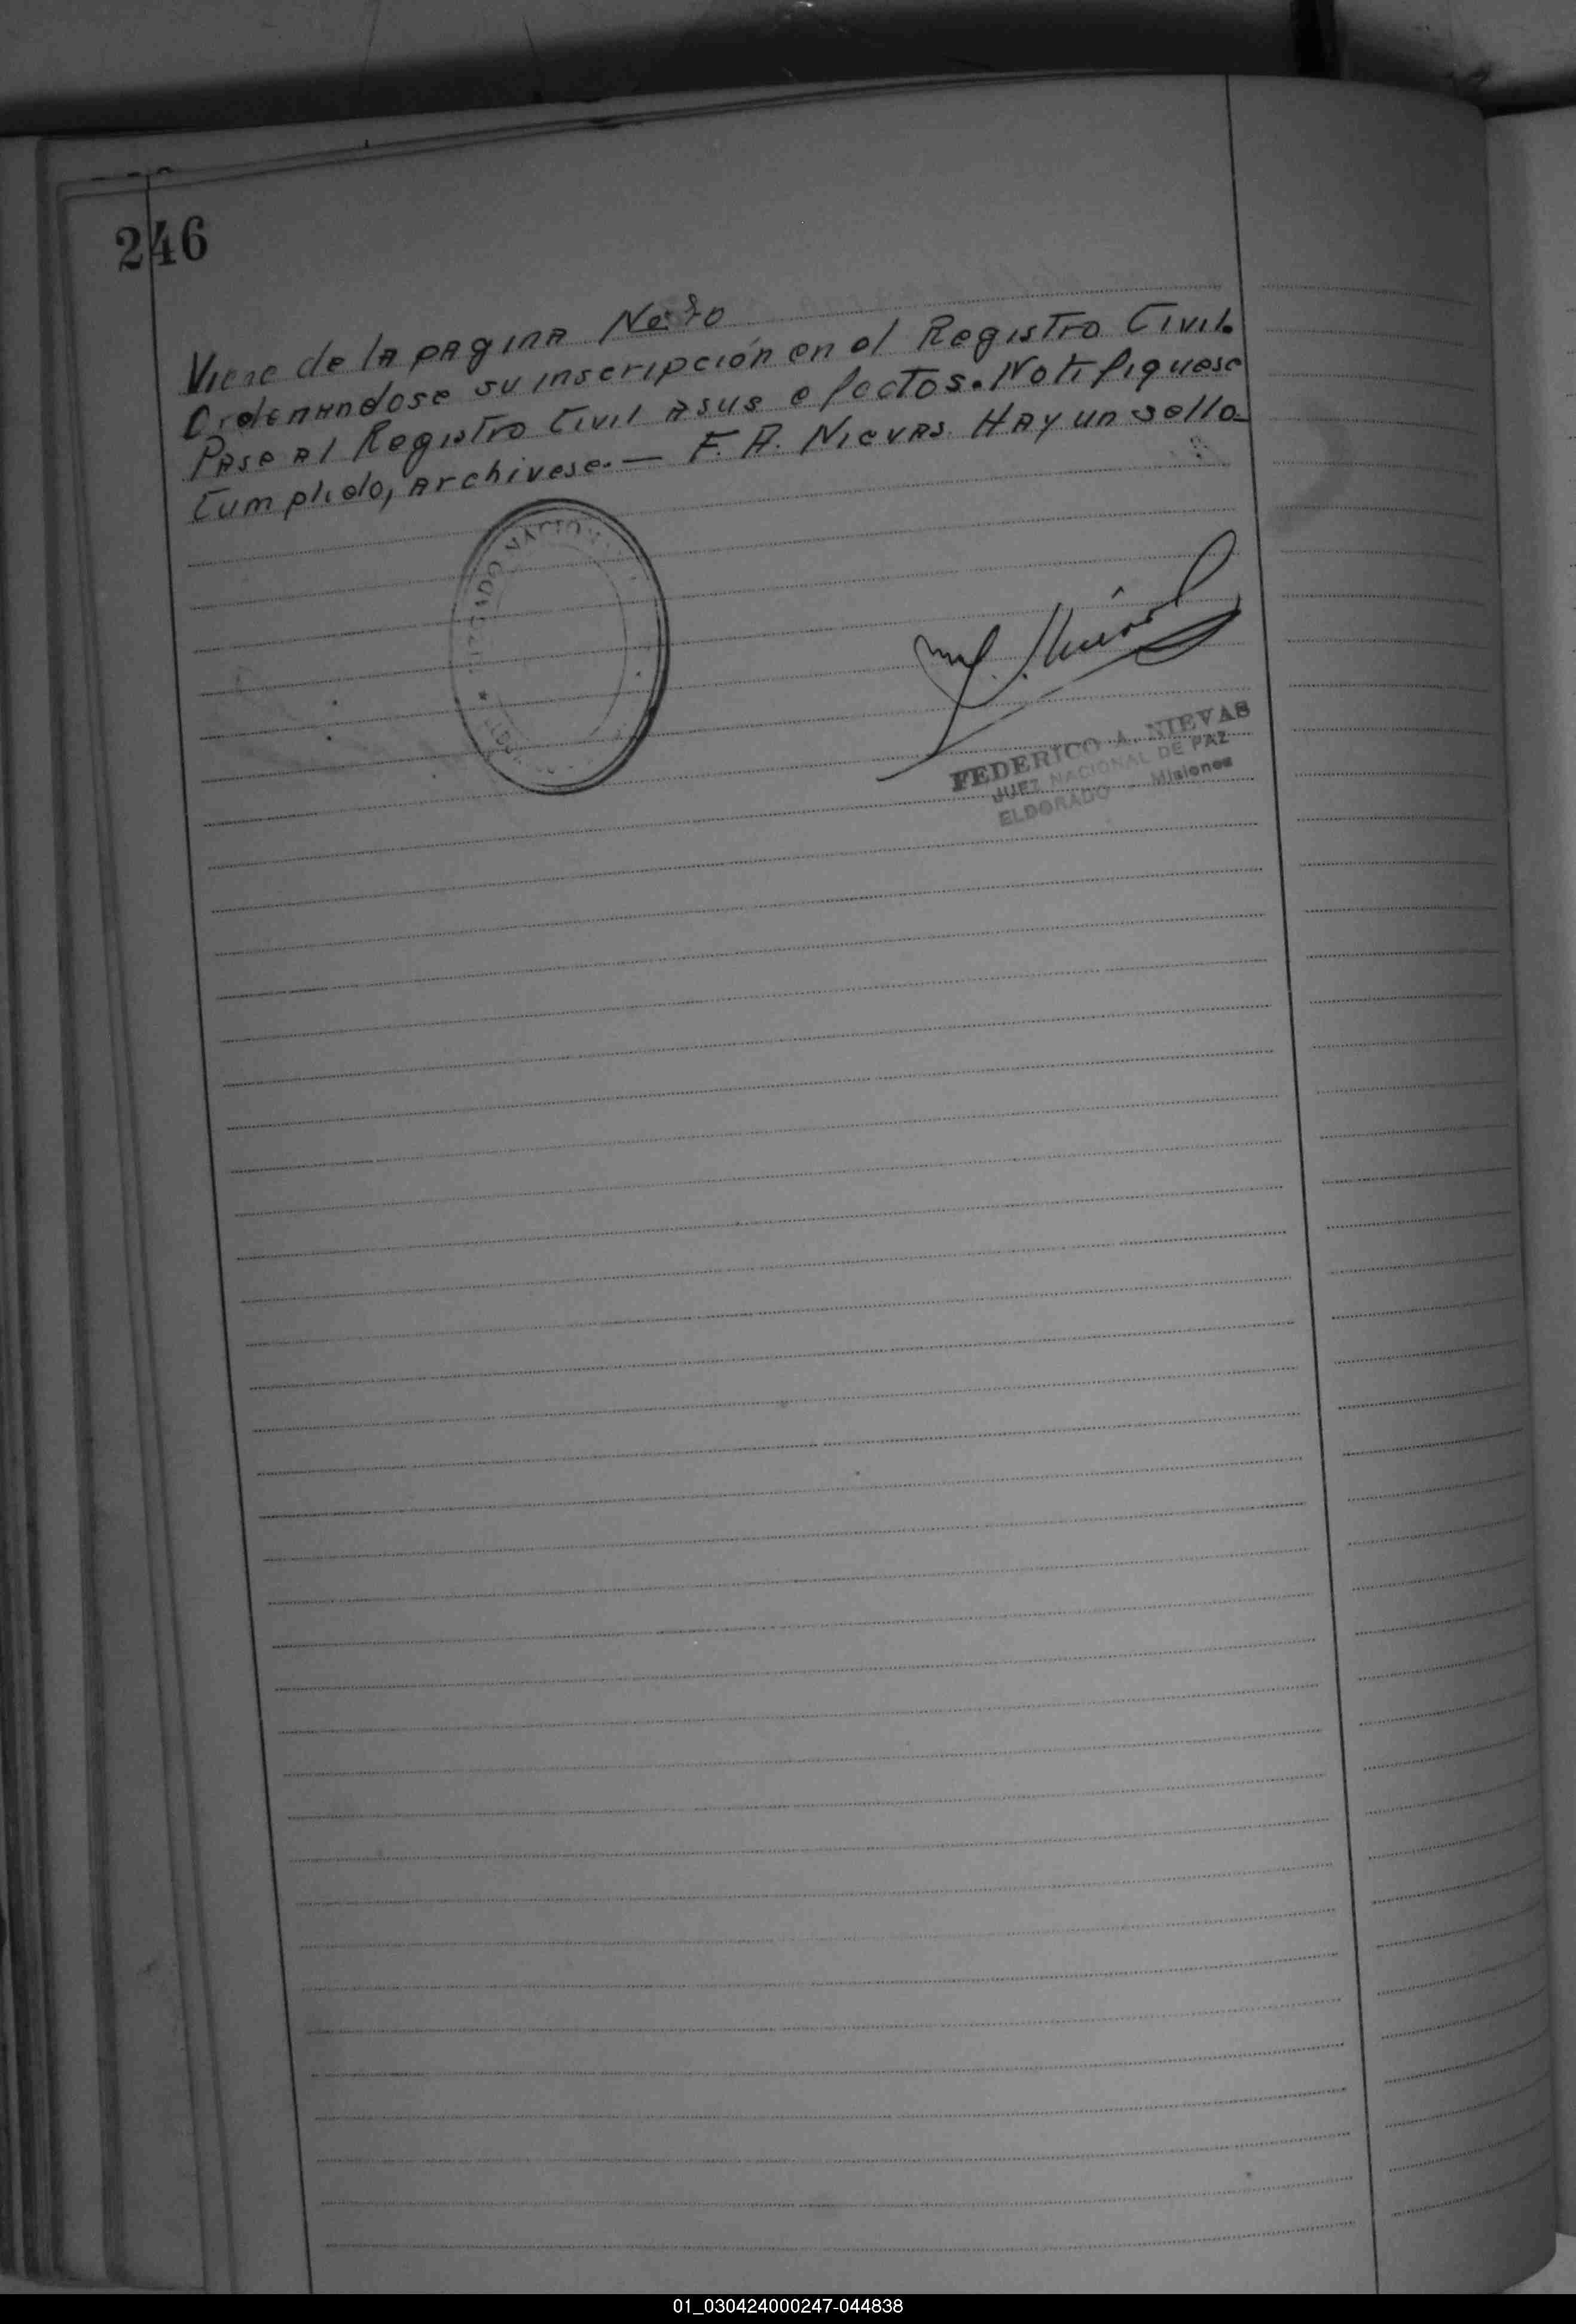 246
Viene de la pagina No
Ordenandose su inscripción en el Registro Civil.
Pase al Registro Civil a sus efectos. Notifiquese
Cumplido, archivese. — F. A. Nievas. Hay un sello
JUZGADO NACIONAL
FEDERICO A. NIEVAS
JUEZ NACIONAL DE PAZ
ELDORADO - Misiones
01_030424000247-044838